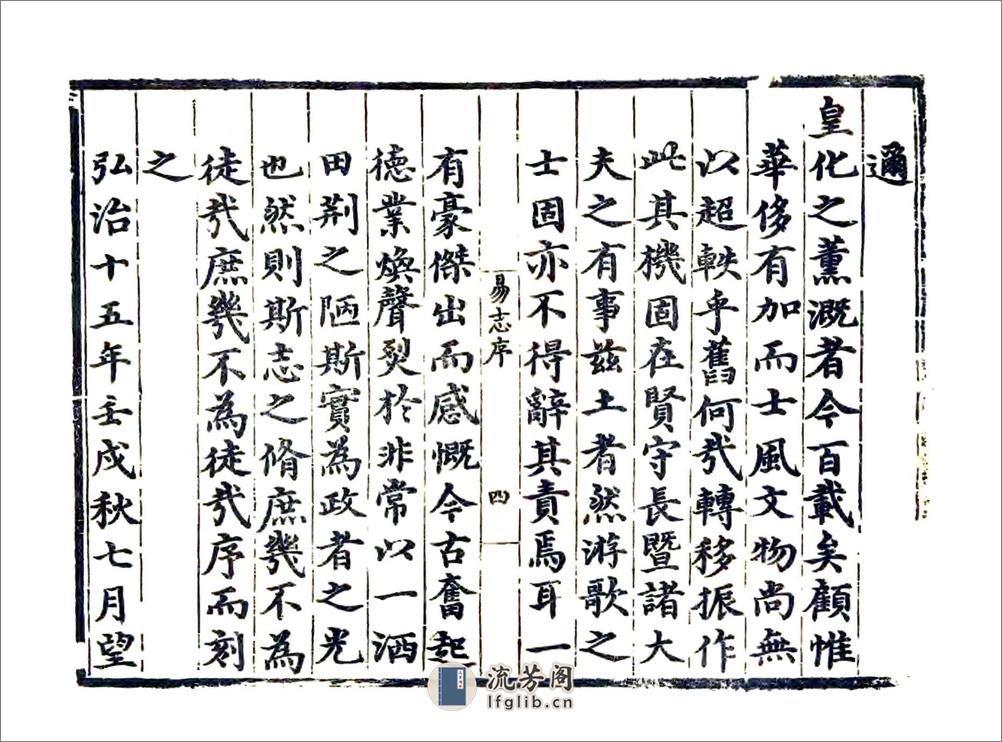 邇
皇化之薰溉者今百載矣顧惟
華侈有加而士風文物尚無
以超軼乎舊何㢤轉移振作
此其機固在賢守長暨諸大
夫之有事茲土者然游歌之
士固亦不得辭其責焉耳一
易志序
四
有豪傑出而感慨今古奮起
德業煥聲烈於非常以一洒
田荆之陋斯實為政者之光
也然則斯志之脩庶幾不為
徒㢤庶幾不為徒㢤序而刻
之
弘治十五年壬戌秋七月望
流芳阁
lfglib.cn